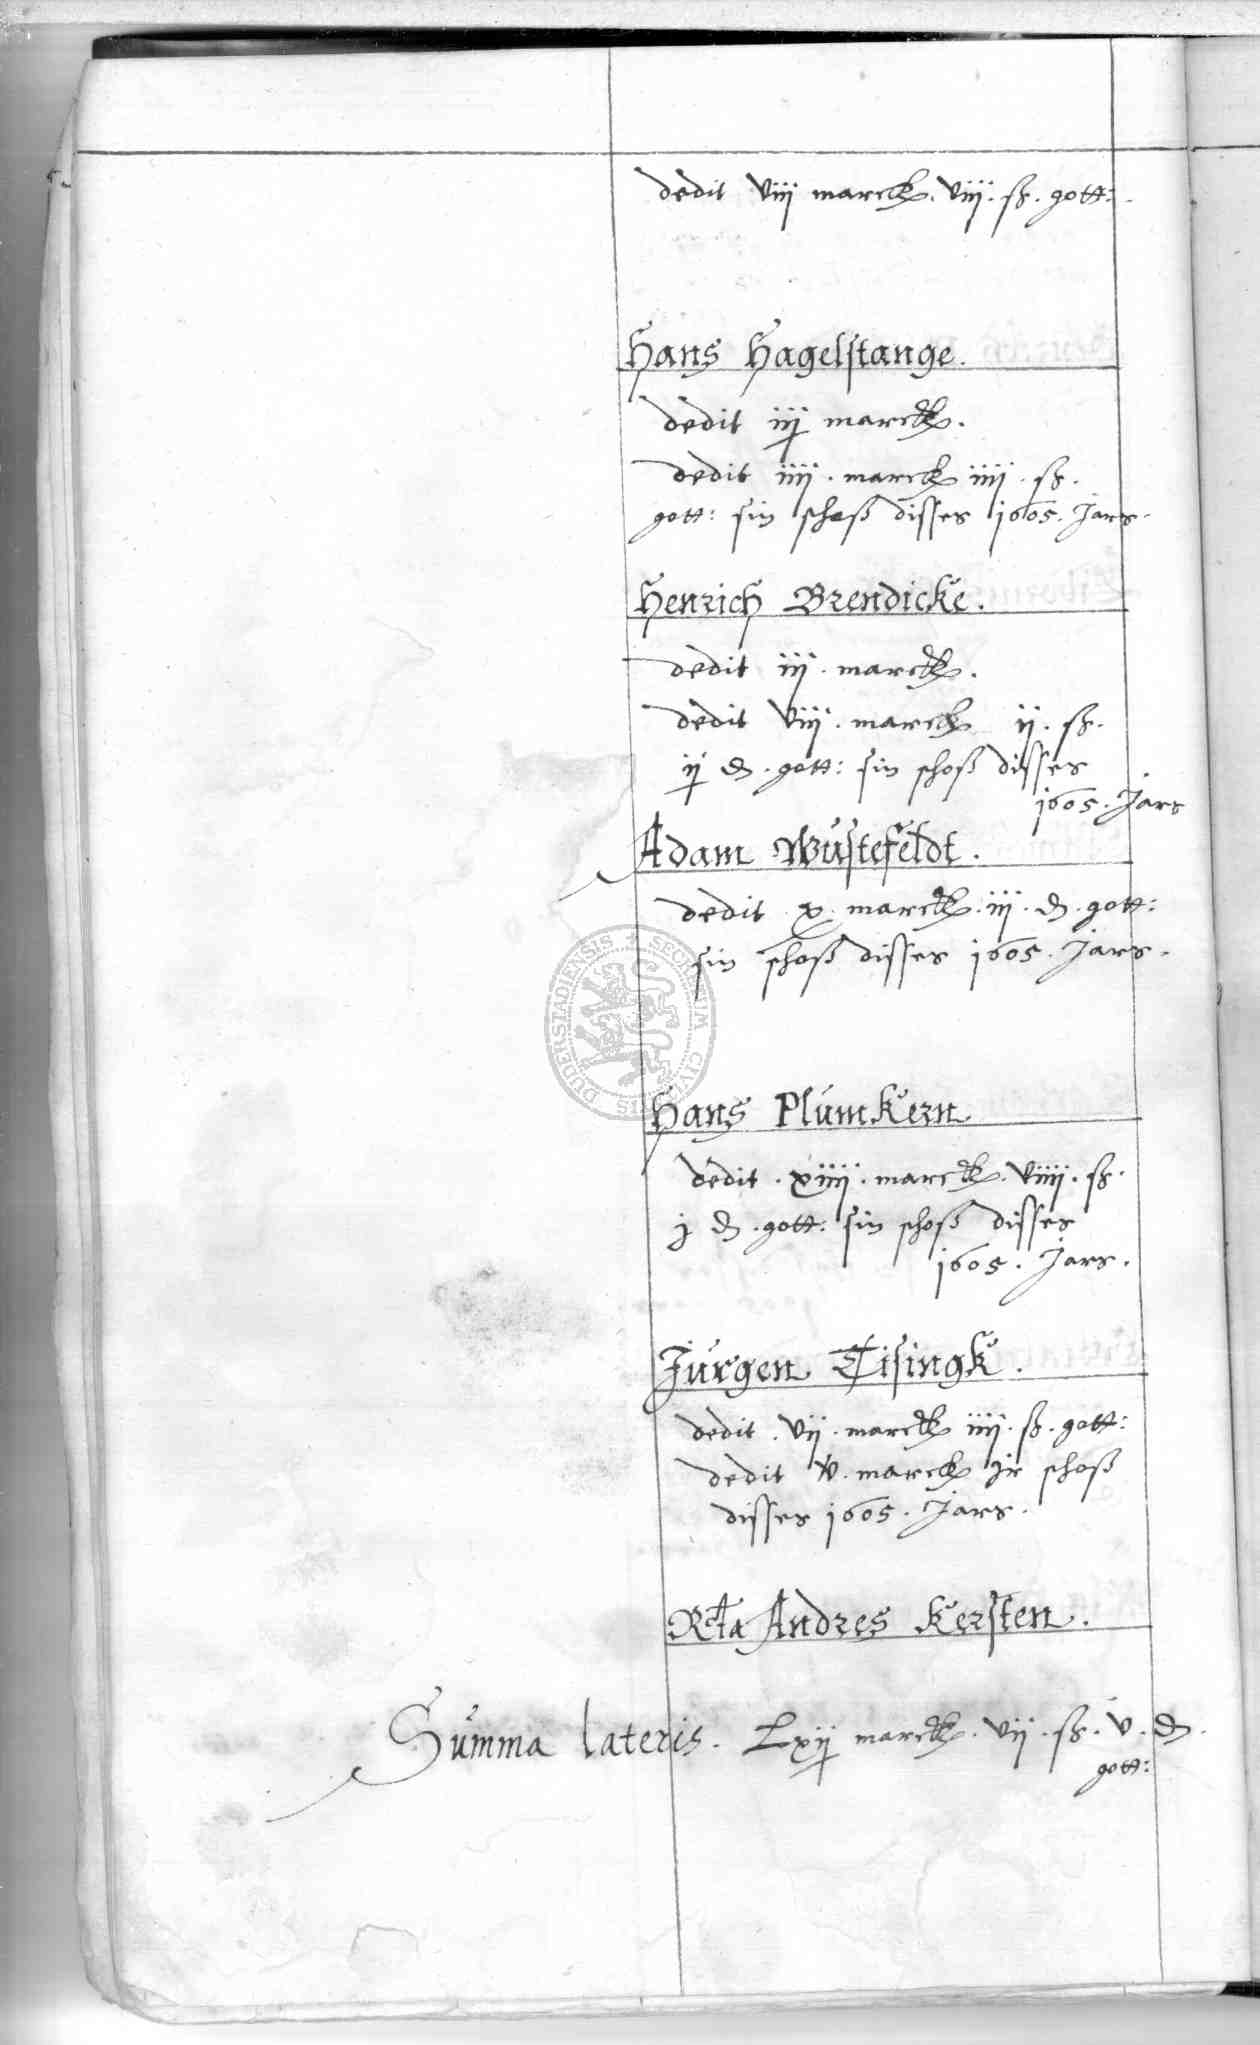 dedit viij marck. viij. ß. gott:
Hans Hagelstange.
dedit iij marck.
dedit iiij. marck iiij. ß.
gott: sin schoß disses 1605. Jars.
Henrich Brendicke.
dedit iij. marck.
dedit viij. marck ij. ß.
ij d. gott: sin schoß disses
1605. Jars
Adam Wüstefeldt.
dedit x. marck. iij. d. gott:
sin schoß disses 1605. Jars.
SECRETUM CIVITATIS DUDERSTADIENSIS
Hans Plümkern
dedit. xiiij. marck. viiij. ß.
j d. gott: sin schoß disses
1605. Jars.
Jürgen Tisingk.
dedit. vij. marck iiij. ß. gott:
dedit v. marck Jr schoß
disses 1605. Jars.
Rcta Andres Kersten.
Summa lateris. Lxij marck. vij. ß. v. d.
gott: